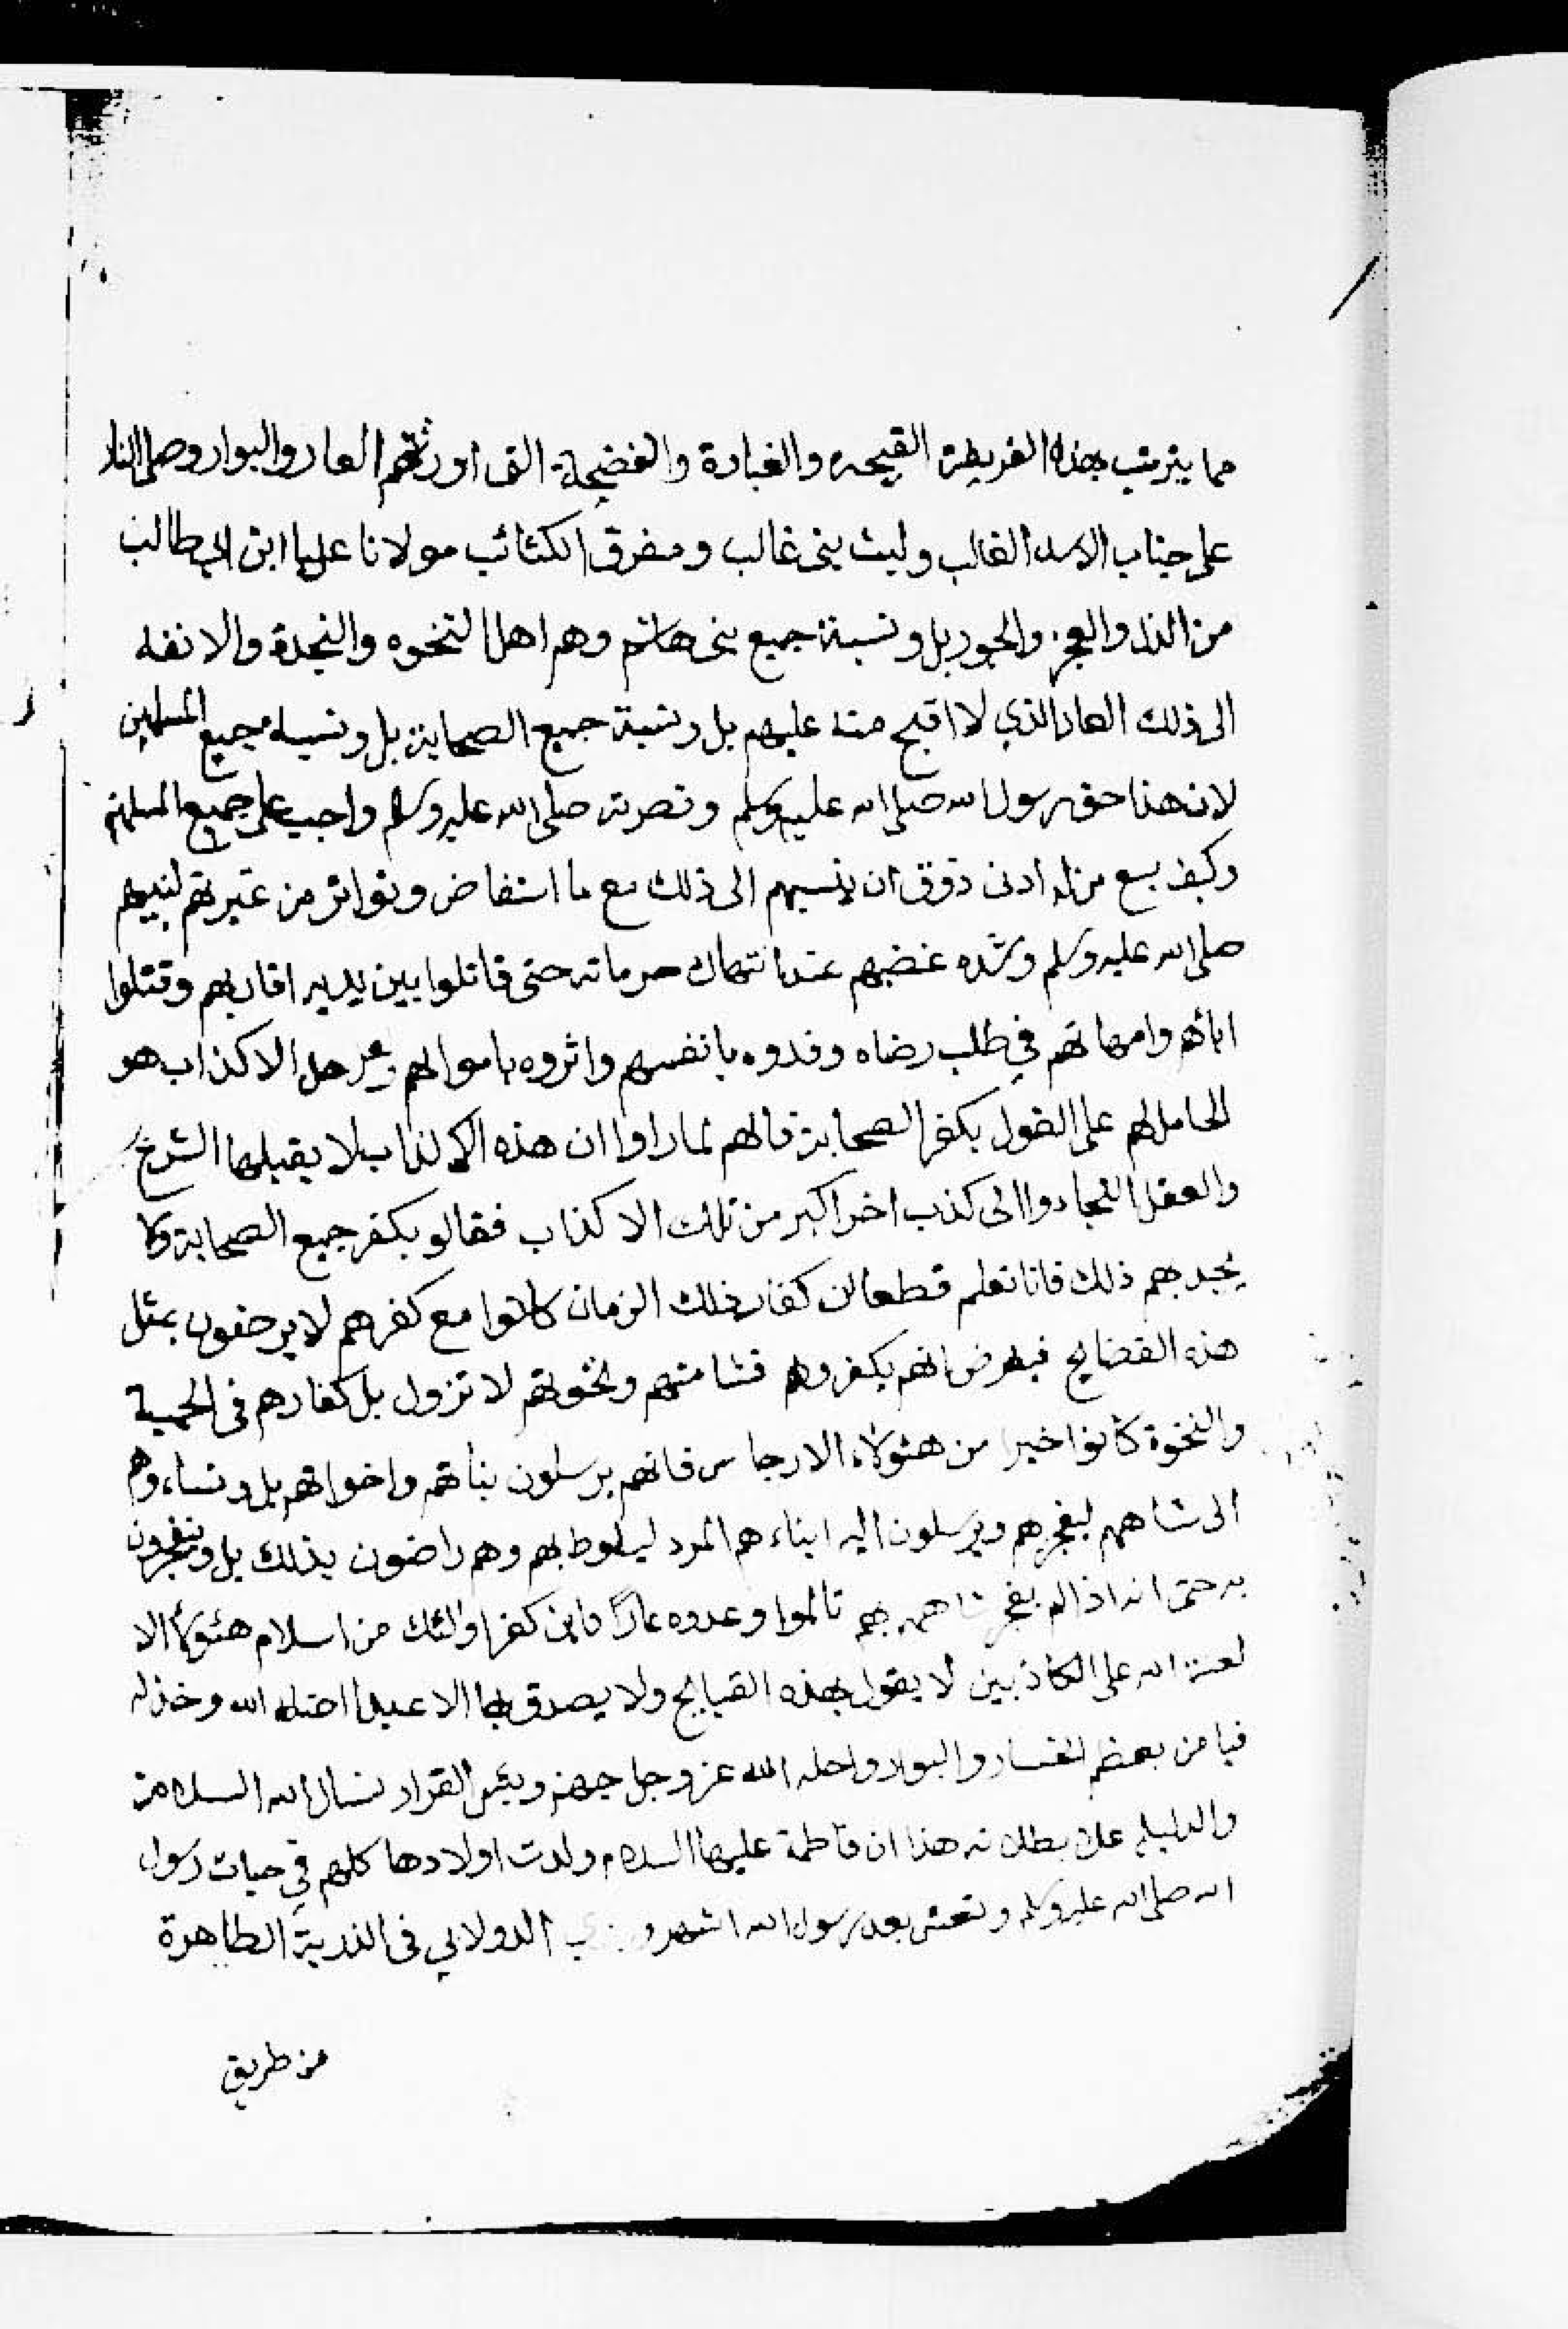 مما يترتب بهذه الفريطة القبيحه والغباوة والفضيحة التى اورثتهم العار والبوار وصلى النار
على جناب الاسد الغالب وليث بنى غالب ومفرق الكتائب مولانا عليا ابن ابي طالب
من الذل والعجز والجور بل ونسبة جميع بنى هاشم وهم اهل النخوه والنجدة والانفه
الى ذلك العار الذي لا اقبح منه عليهم بل ونسبة جميع الصحابة بل ونسبة جميع المسلمين
لان هذا حق رسول الله صلى الله عليه وسلم ونصرته صلى الله عليه وسلم واجب على جميع المسلمين
وكيف يسع من له ادنى ذوق ان ينسبهم الى ذلك مع ما استفاض وتواتر من غيرتهم لنبيهم
صلى الله عليه وسلم وشده غضبهم عند انتهاك حرماته حتى قاتلوا بين يديه اقاربهم وقتلوا
ابائهم وامهاتهم في طلب رضاه وفدوه بانفسهم واثروه باموالهم الاكذاب هو
الحامل لهم على القول بكفر الصحابة فالهم لما راوا ان هذه الاكذاب لا يقبلها الشرع
والعقل التجاءوا الى كذب اخر اكبر من تلك الاكذاب فقالو بكفر جميع الصحابة ولا
يجديهم ذلك فانا نعلم قطعا ان كفار ذلك الزمان كانوا مع كفرهم لا يرضون بمثل
هذه الفضايح فبفرض انهم يكفروهم فشامتهم ونخوتهم لا تزول بل كفارهم فى الحمية
والنخوة كانوا خيرا من هئولاء الارجاس فانهم يرسلون بناتهم واخواتهم بل ونساءوهم
الى شاههم ليفجرهم ويرسلون اليه ابناءهم المرد ليلوط بهم وهم راضون بذلك بل ويتفخرون
به حتى انه اذا لم يفجر شاههم بهم تالموا وعدوه عارًا فاين كفر اولئك من اسلام هئولاء الا
لعنة الله على الكاذبين لا يقول بهذه القبايح ولا يصدق بها الا عبد اضله الله وخذله
فيا من بعضهم الخسار والبوار واحله الله عز وجل جهنم وبئس القرار نسال الله السلامة
والدليل على بطلانه هذا ان فاطمة عليها السلام ولدت اولادها كلهم في حيات رسول
الله صلى الله عليه وسلم وتعش بعد رسول الله اشهر الدولابي فى الذرية الطاهرة
من طريق